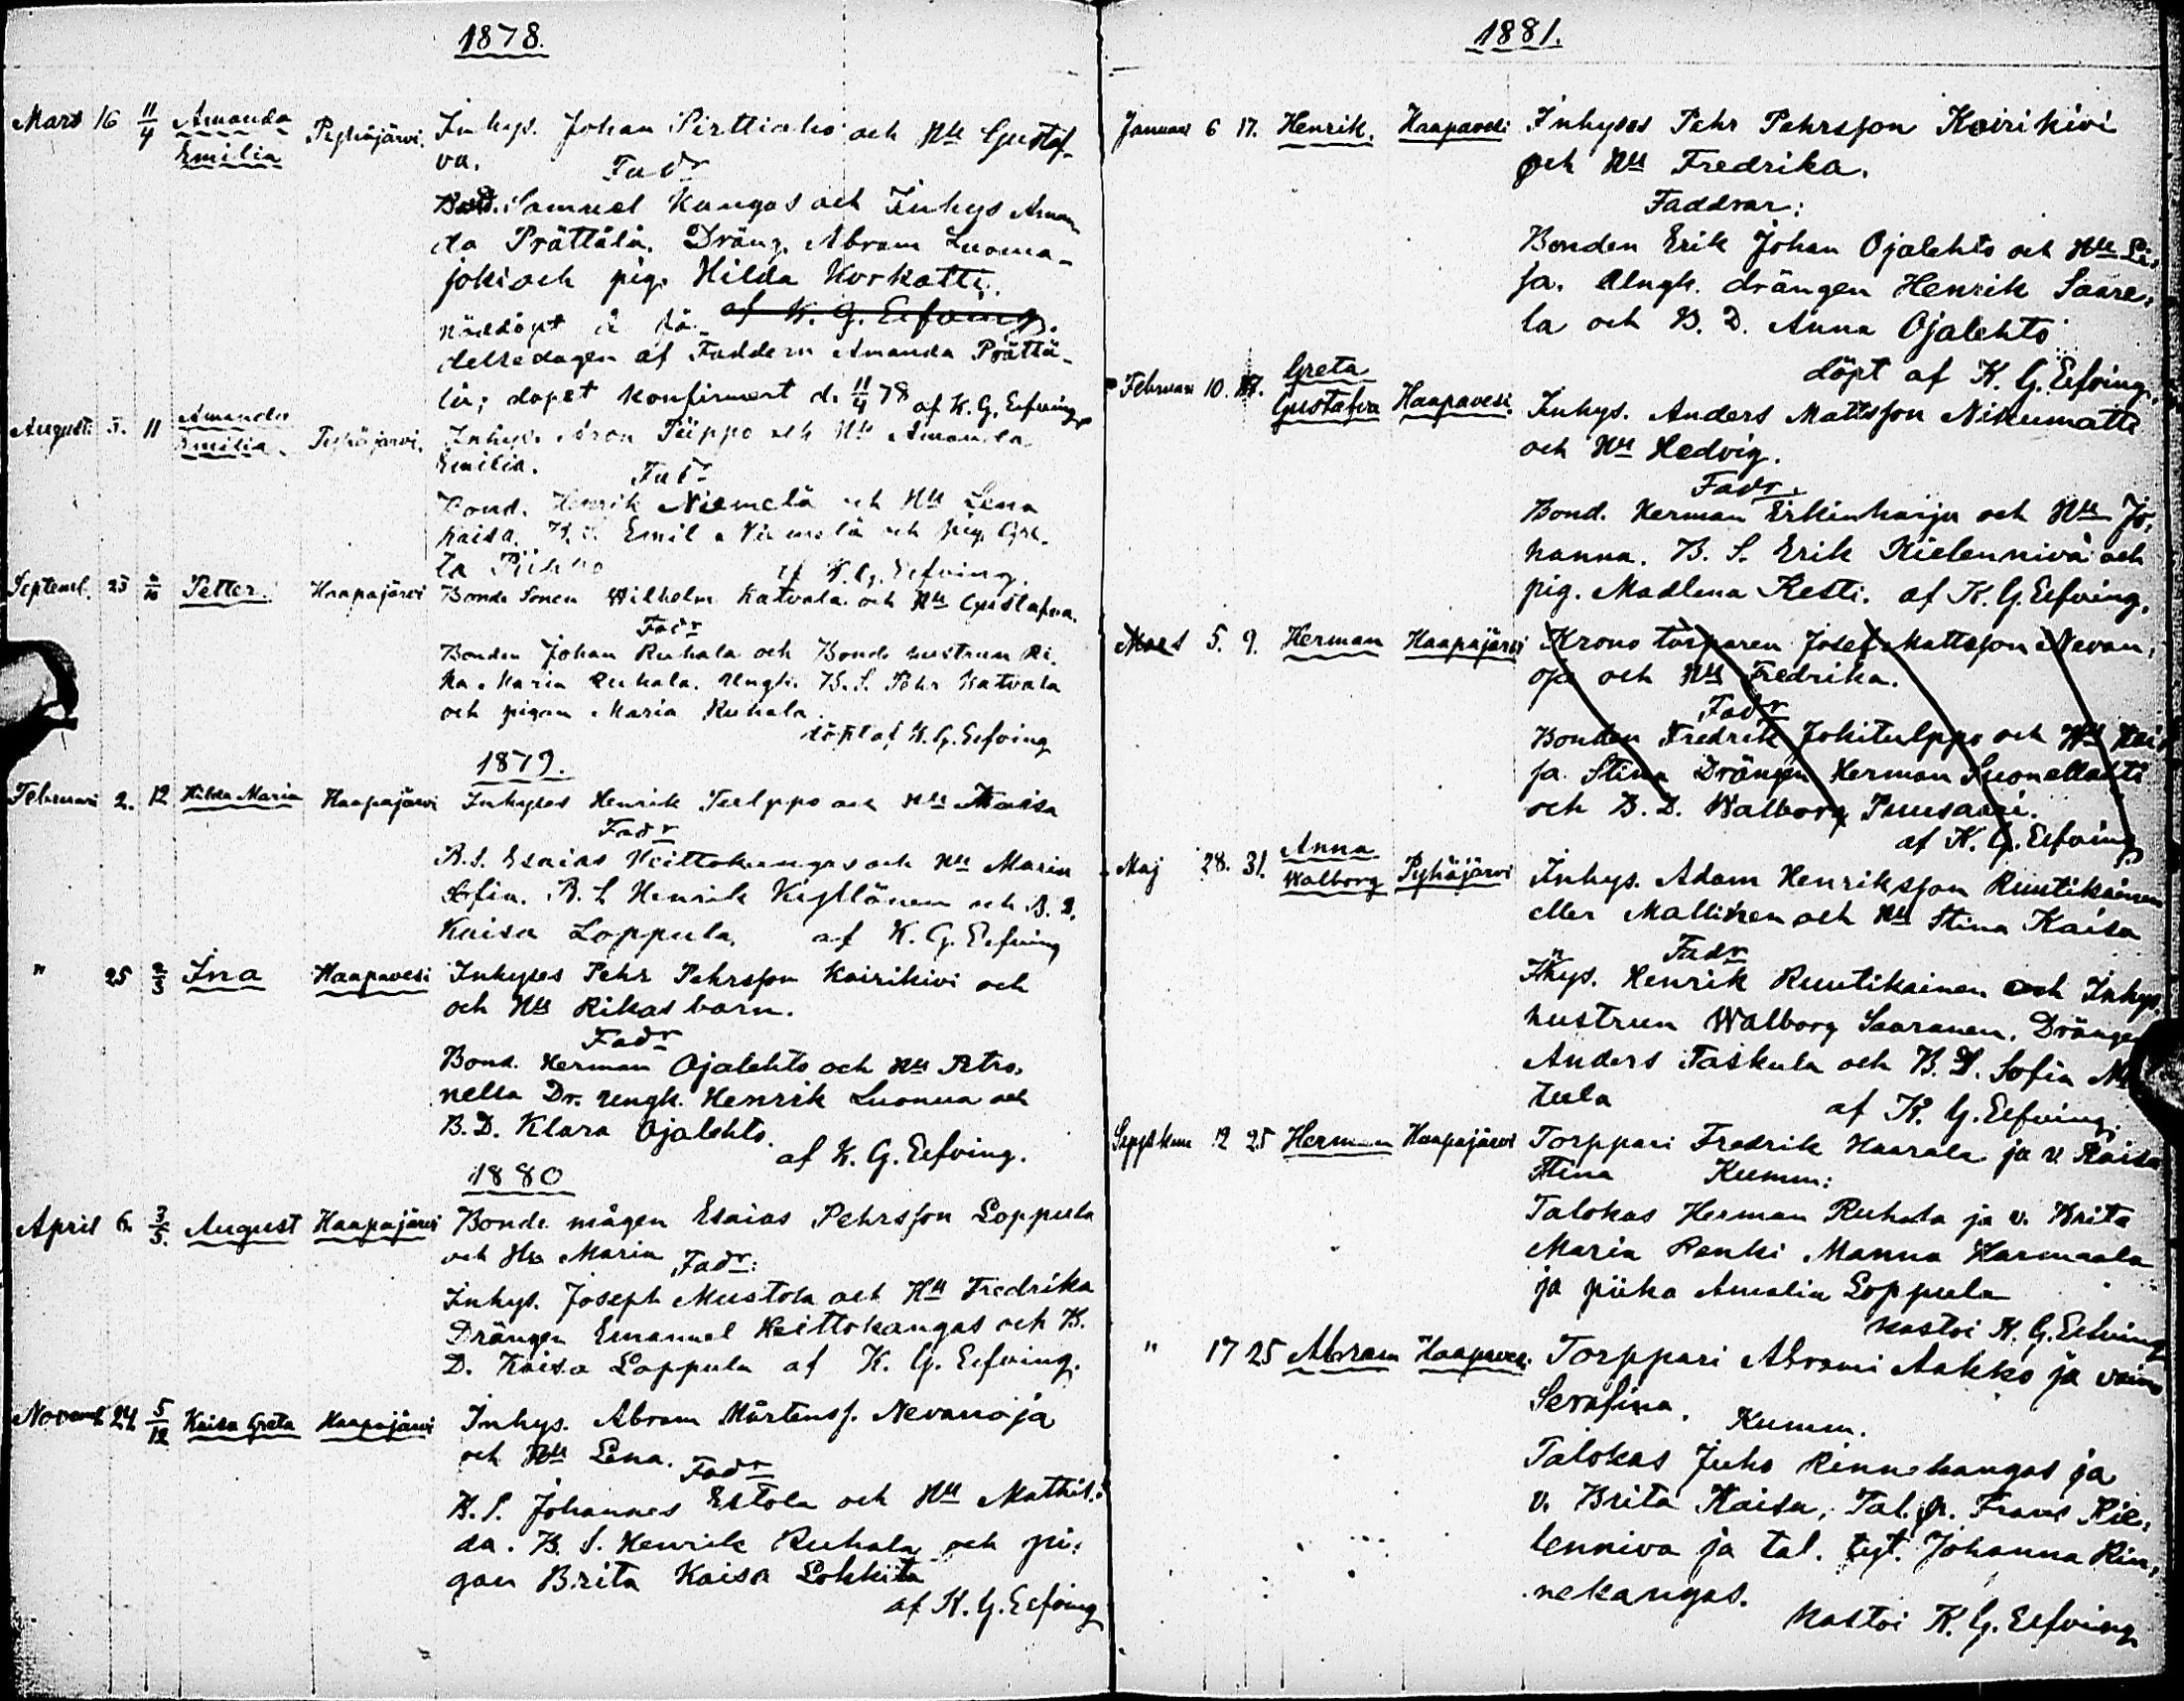 1878.
Mars 16 11/4 Amanda Emilia Pyhäjärvi. Inhys. Johan Pirttiaho och Hu Gustaf-
va.
Fadr
Bond. Samuel Kangas och Inhys Aman
da Prättälä. Dräng. Abram Luoma-
joki och pig. Hilda Korkatti.
nöddöpt å fö- af K. G. Eefving.
delsedagen af Faddern Amanda Prättä-
lä; dopet konfirmert d. 11/4 78 af K. G. Eefving
August. 5. 11 Amanda Emilia. Pyhäjärvi. Inhys. Aron Piippo och Hu Amanda
Emilia.
Fadr
Bond. Henrik Niemelä och Hu Lena
Kaisa. B. S. Emil Niemelä och pig. Gre-
ta Piippo af K. G. Eefving.
Septemb. 25 6/10 Petter. Haapajärvi Bonde Sonen Wilhelm Katvala och Hu Gustafva.
Fadr
Bonden Johan Ruhala och Bonde hustrun Ri-
ka Maria Ruhala. Ungk. B. S. Pehr Katvala
och pigan Maria Ruhala.
döpt af K. G. Eefving
1879.
Februari 2. 12 Hilda Maria Haapajärvi Inhyses Henrik Tulppo och Hu Kaisa
Fadr
B. S. Esaias Keittokangas och Hu Maria
Sofia. B. S. Henrik Kyllönen och B. D.
Kaisa Loppula, af K. G. Eefving
" 25 2/3 Ina Haapavesi Inhyses Pehr Pehrsson Koirikivi och
och Hu Rikas barn.
Fadr
Bond. Herman Ojalehto och Hu Petro-
nella Dr. ungk. Henrik Luoma och
B. D. Klara Ojalehto.
af K. G. Eefving.
1880
April 6. 3/5. August Haapajärvi Bonde mågen Esaias Pehrsson Loppula
och Hu Maria Fadr:
Inhys. Joseph Mustola och Hu Fredrika
Drängen Emanuel Keittokangas och B.
D. Kaisa Loppula af K. G. Eefving.
Novemb 24 5/12 Kaisa Greta Haapajärvi Inhys. Abram Mårtenss. Nevanoja
och Hu Lena. Fadr
B. S. Johannes Eskola och Hu Mathil-
da. B. S. Henrik Ruhala och pi-
gan Brita Kaisa Lokkita
af K. G. Eefving
1881.
Januari 6 17. Henrik. Haapavesi Inhyses Pehr Pehrsson Koirikivi
och Hu Fredrika.
Faddrar:
Bonden Erik Johan Ojalehto och Hu Li-
sa. Ungk. drängen Henrik Saare-
la och B. D. Anna Ojalehto
döpt af K. G. Eefving.
Februari 10. 17. Greta Gustafva Haapavesi. Inhys. Anders Mattsson Nikumatti
och Hu Hedvig.
Fadr.
Bond. Herman Erkinharju och Hu Jo-
hanna. B. S. Erik Kielenniva och
pig. Madlena Kesti. af K. G. Eefving.
Mars 5. 9. Herman Haapajärvi Krono torparen Josef Mattsson Nevan-
oja och Hu Fredrika.
Fadr
Bonden Fredrik Jokitulppo och Hu Kai-
sa Stina Drängen Herman Suonellahti
och B. D. Walborg Puusaari.
af K. G. Eefving
Maj 28. 31. Anna Walborg Pyhäjärvi Inhys. Adam Henriksson Ruutikainen
eller Mallinen och Hu Stina Kaisa
Fadr
Inhys. Henrik Ruutikainen och Inhys.
hustrun Walborg Saaranen. Drängen
Anders Taskula och B. D. Sofia
tula af K. G. Eefving.
12 25 Herman Haapajärvi Torppari Fredrik Haarala ja v. Kaisa
Stina Kumm:
Talokas Herman Ruhala ja v. Brita
Maria Renki Manna Harmaala
ja piika Amalia Loppula
kastoi K. G. Eefving
" 17 25 Abram Haapavesi. Torppari Abrami Aakko ja vaimo
Serafina. Kumm.
Talokas Juho Rinnekangas ja
v. Brita Kaisa; Tal. p. Frans Kie-
lenniva ja tal. tyt. Johanna Rin-
nekangas.
kastoi K. G. Eefving